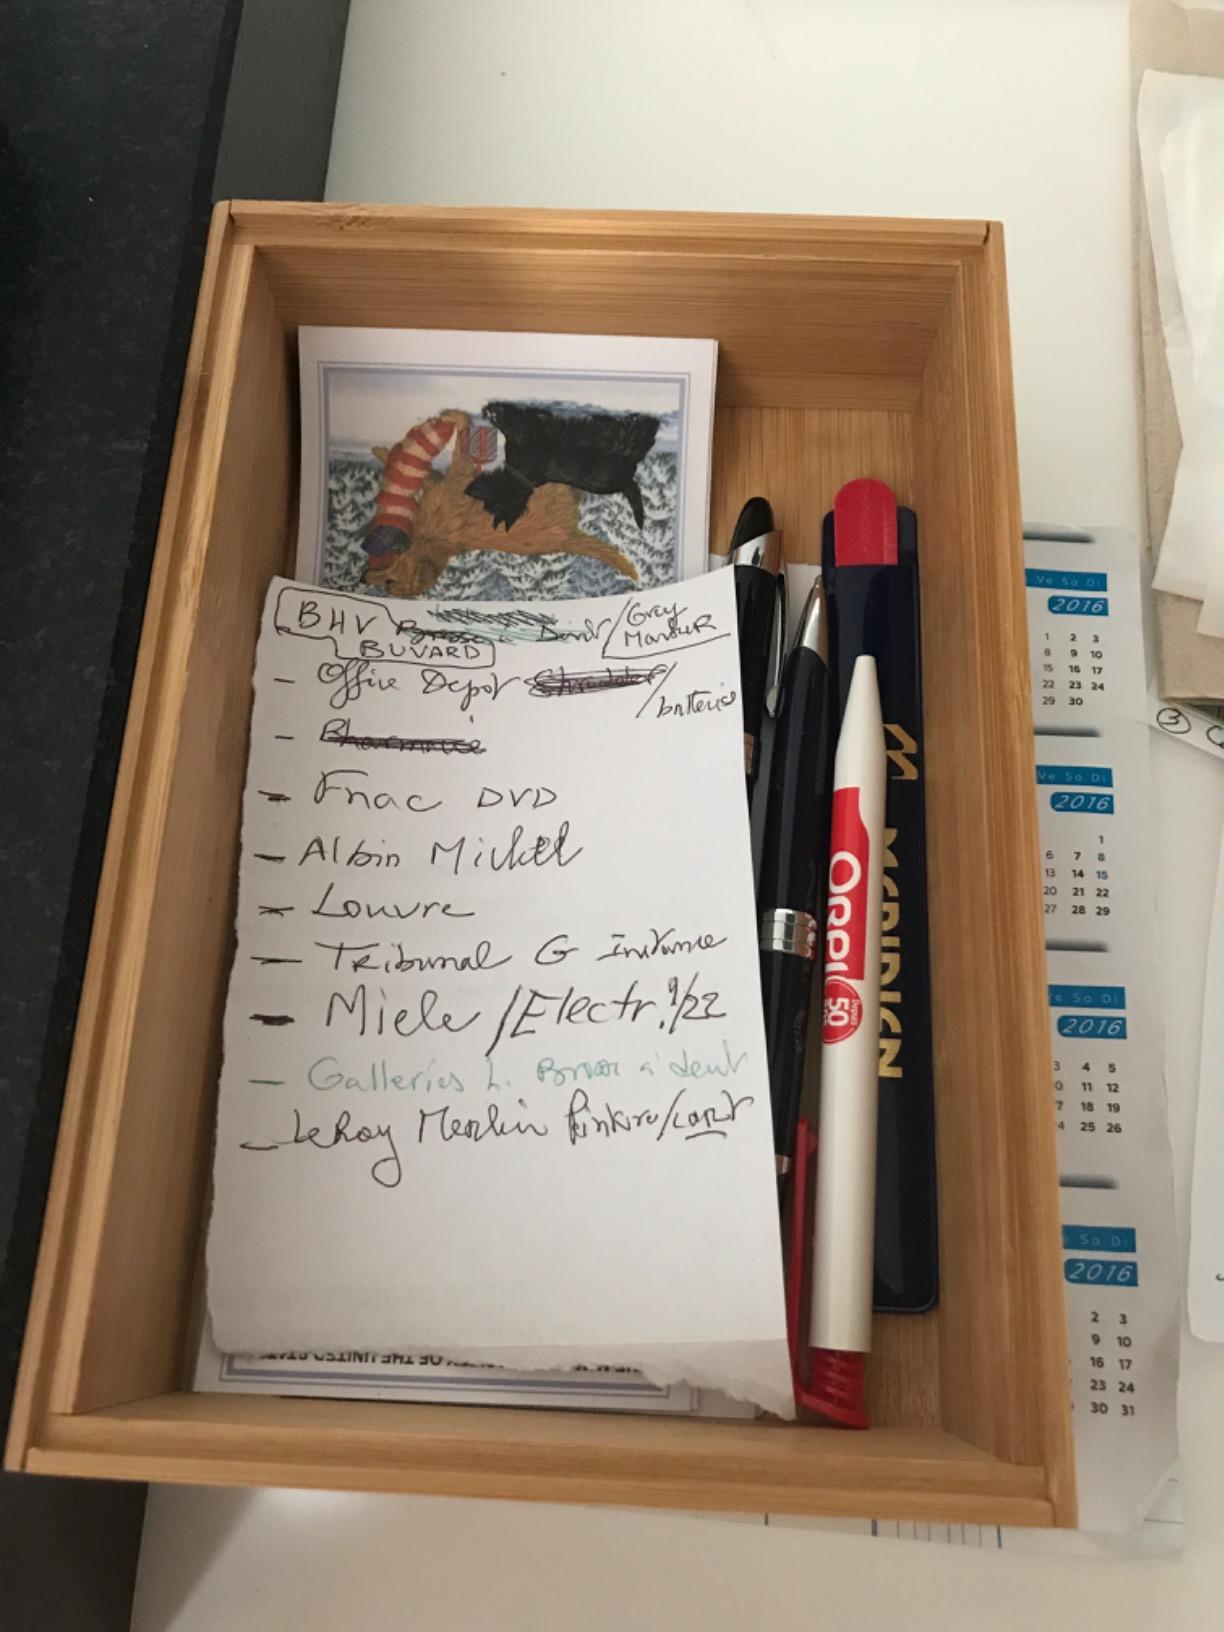 BHV / Grey
BUVARD Marker
- Office Depot / batteries
- Pharmacie
- Fnac DVD
- Albin Michel
- Louvre
- Tribunal G Instance
- Miele / Electr. 9/22
- Galleries L. Brosse à dent
- LeRoy Merlin Peinture/
OF THE UNITED STATE
ORPI
Depuis
50
ANS
MERIDIEN
Ve Sa Di
2016
1 2 3
8 9 10
15 16 17
22 23 24
29 30
Ve Sa Di
2016
1
6 7 8
13 14 15
20 21 22
27 28 29
e Sa Di
2016
3 4 5
0 11 12
7 18 19
4 25 26
e Sa Di
2016
2 3
9 10
16 17
23 24
30 31
3